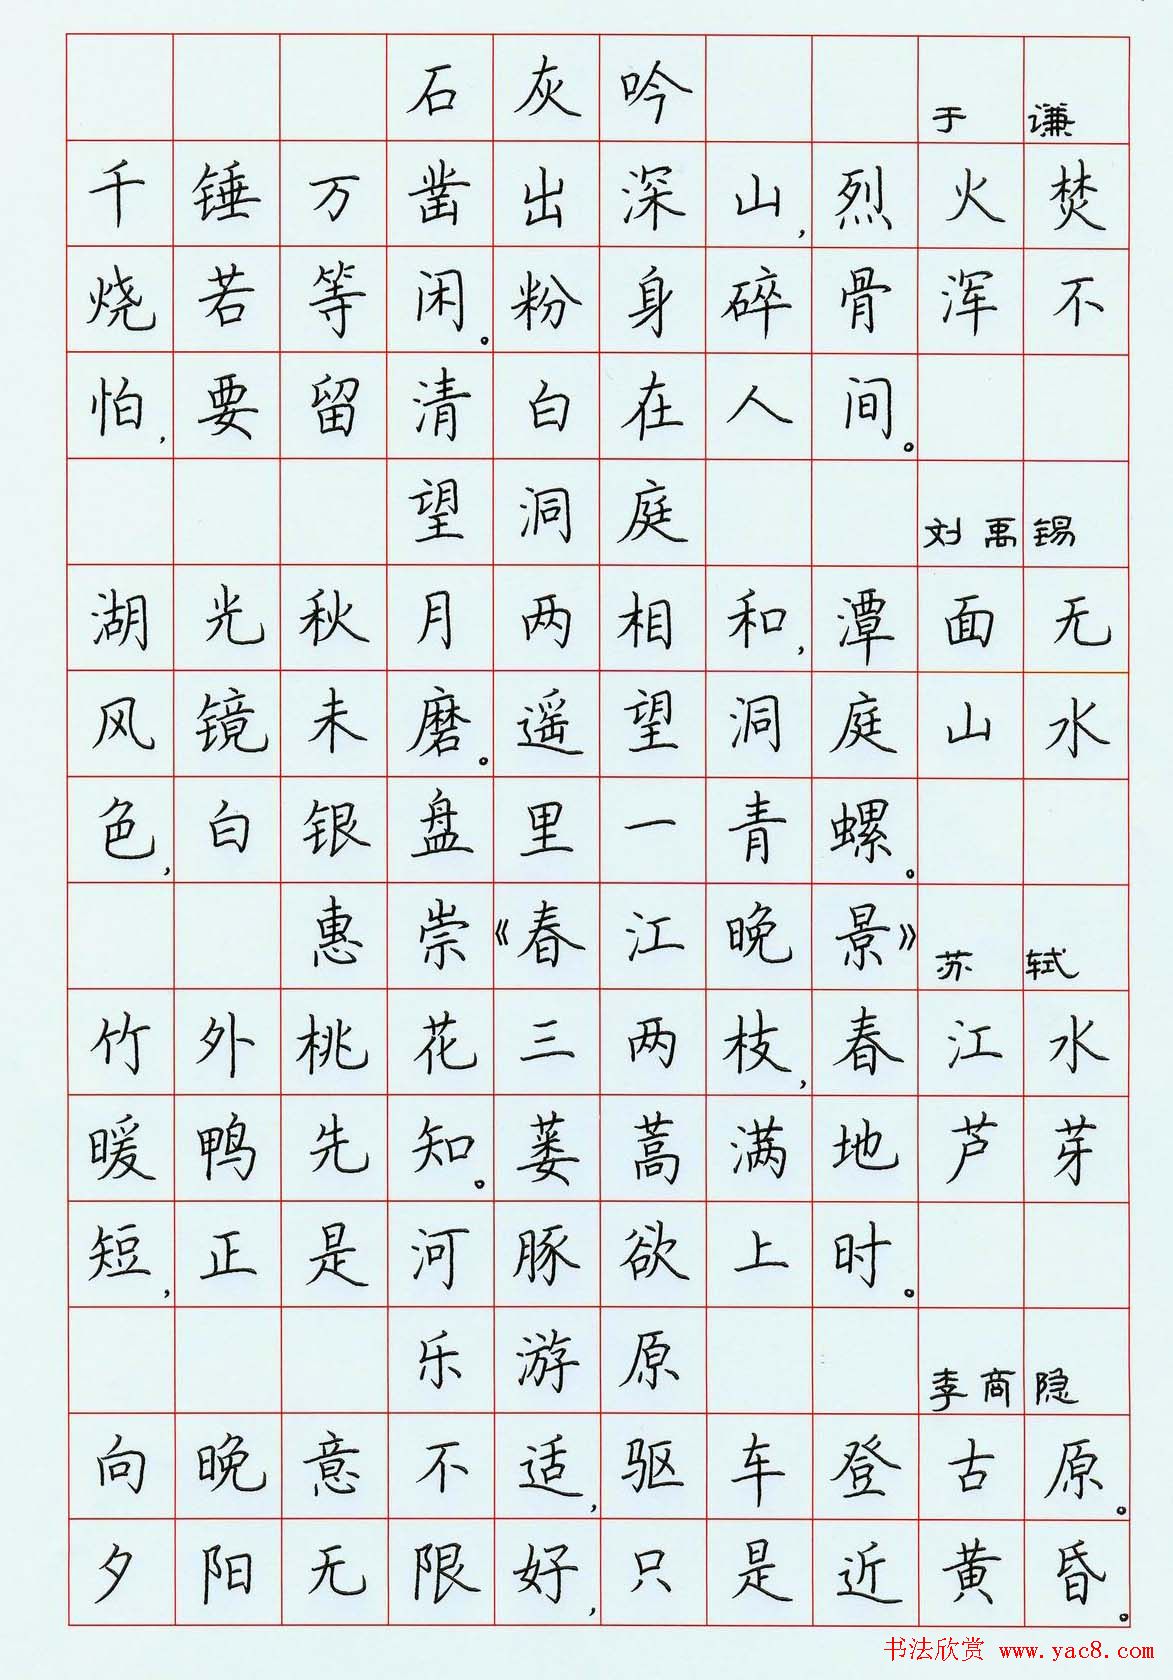 石灰吟 于谦
千锤万凿出深山,烈火焚
烧若等闲。粉身碎骨浑不
怕,要留清白在人间。
望洞庭 刘禹锡
湖光秋月两相和,潭面无
风镜未磨。遥望洞庭山水
色,白银盘里一青螺。
惠崇《春江晚景》 苏轼
竹外桃花三两枝,春江水
暖鸭先知。蒌蒿满地芦芽
短,正是河豚欲上时。
乐游原 李商隐
向晚意不适,驱车登古原。
夕阳无限好,只是近黄昏。
书法欣赏 www.yac8.com